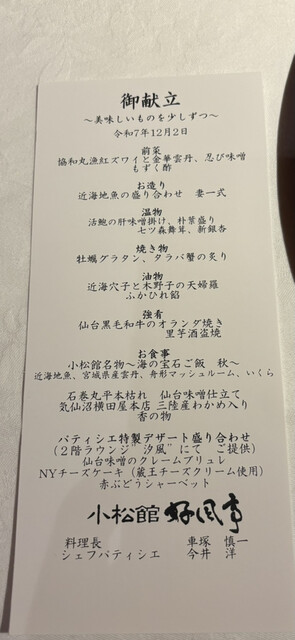 御献立
～美味しいものを少しずつ～
令和7年12月2日
前菜
協和丸漁紅ズワイと金華雲丹、忍び味噌
もずく酢
お造り
近海地魚の盛り合わせ　妻一式
温物
活鮑の肝味噌掛け、朴葉盛り
七ツ森舞茸、新銀杏
焼き物
牡蠣グラタン、タラバ蟹の炙り
油物
近海穴子と木野子の天婦羅
ふかひれ餡
強肴
仙台黒毛和牛のオランダ焼き
里芋酒盗焼
お食事
小松館名物～海の宝石ご飯　秋～
近海地魚、宮城県産雲丹、舟形マッシュルーム、いくら
石巻丸平本枯れ　仙台味噌仕立て
気仙沼横田屋本店 三陸産わかめ入り
香の物
パティシエ特製デザート盛り合わせ
（2階ラウンジ"汐風"にて　ご提供）
仙台味噌のクレームブリュレ
NYチーズケーキ（蔵王チーズクリーム使用）
赤ぶどうシャーベット
小松館 好風亭
料理長　車塚　慎一
シェフパティシエ　今井　洋